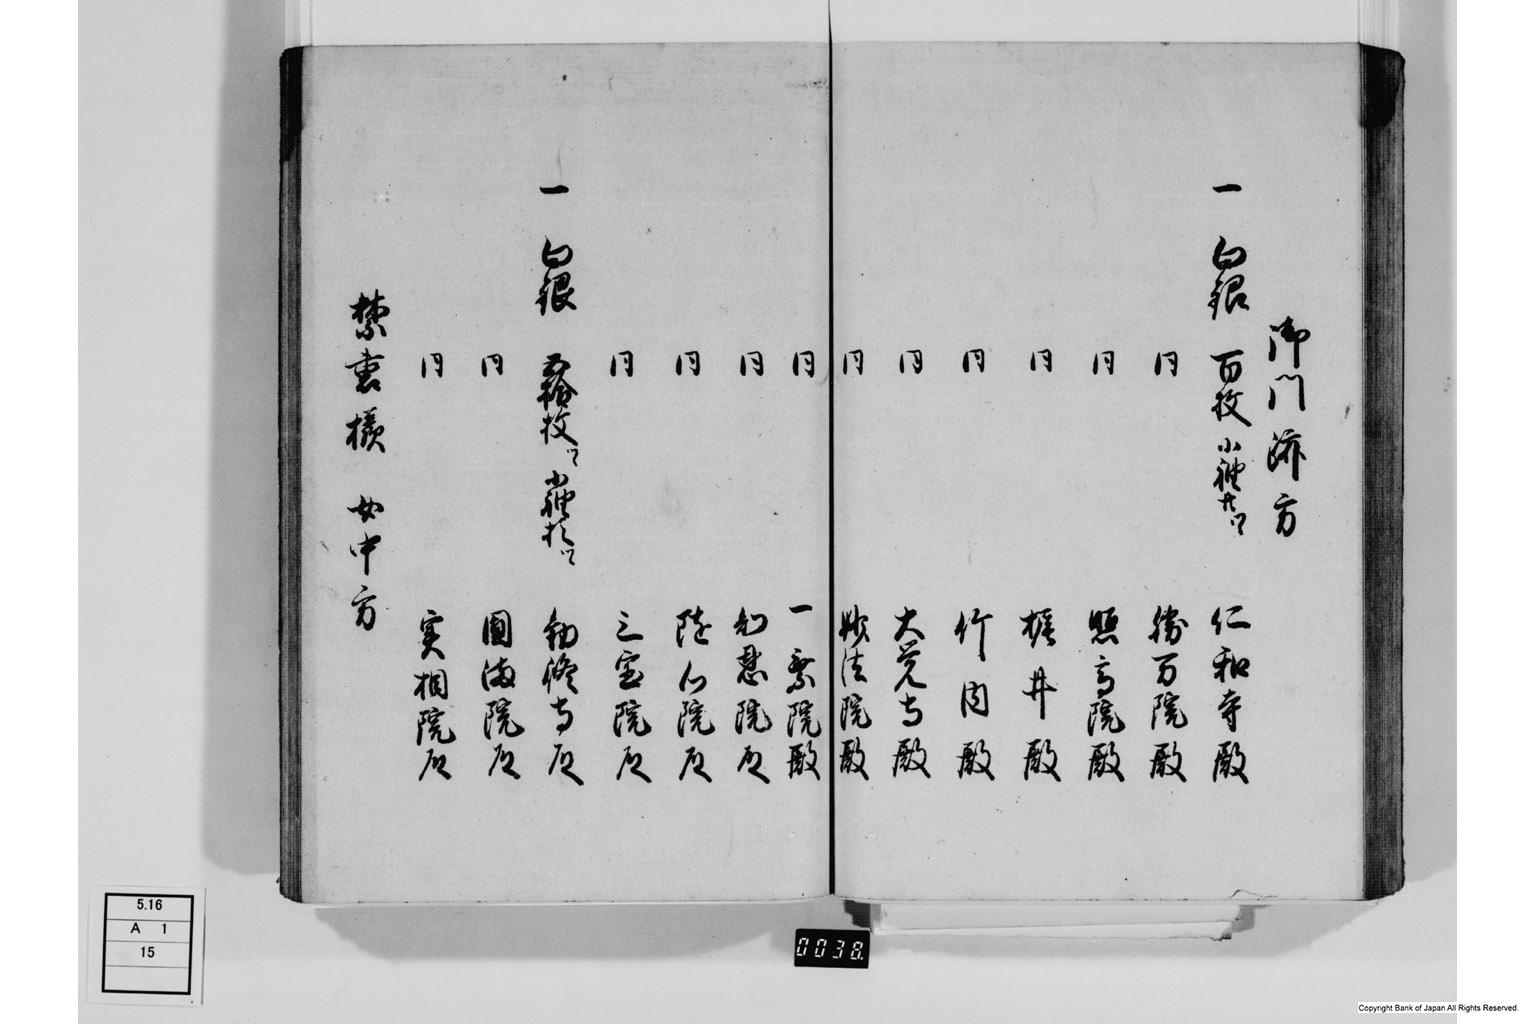 御門跡方
一 白銀 百枚 小袖廿ツヽ 仁和寺殿
同 勝万院殿
同 照高院殿
同 梶井殿
同 竹内殿
同 大覚寺殿
同 妙法院殿
同 一乗院殿
同 知恩院殿
同 随心院殿
同 三宝院殿
一 白銀 五拾枚ツヽ 小袖拾ツヽ 勧修寺殿
同 圓満院殿
同 実相院殿
禁裏様 女中方
5.16
A 1
15
0038.
Copyright Bank of Japan All Rights Reserved.